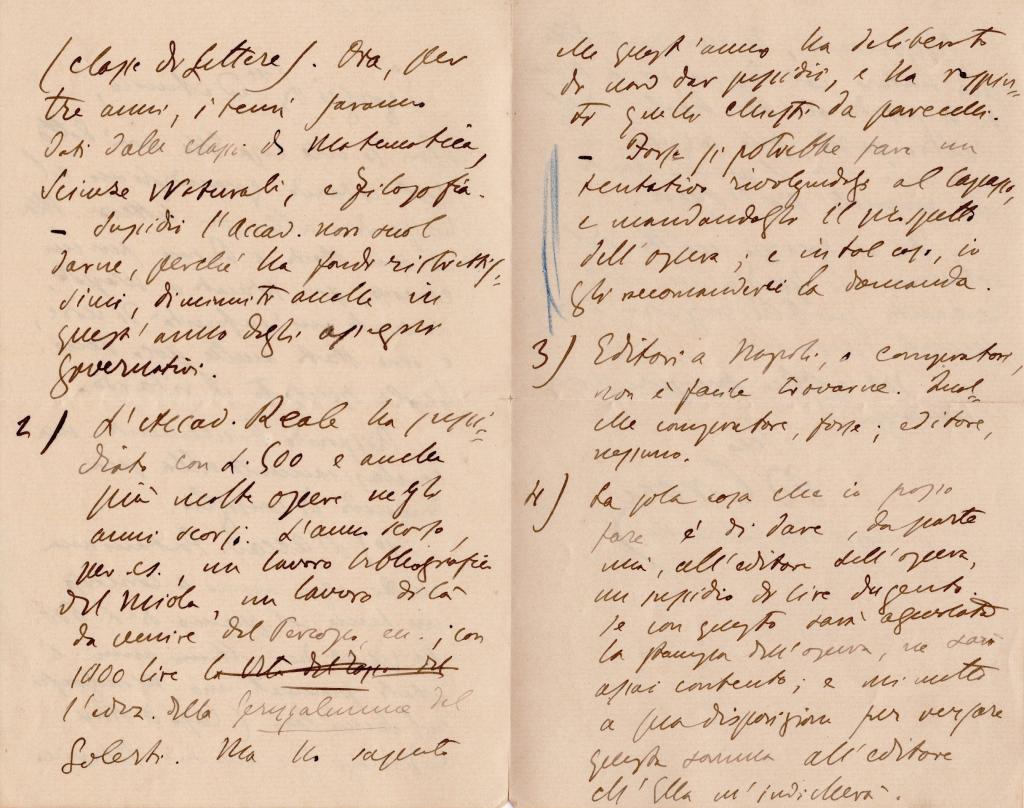 (classe di Lettere). Ora, per
tre anni, i temi saranno
dati dalle classi di Matematica,
Scienze Naturali, e Filosofia.
– Sussidii l'Accad. non suol
darne, perché ha fondi ristrettis-
simi, diminuiti anche in
quest'anno dagli assegni
governativi.
2) L'Accad. Reale ha sussi-
diato con L. 500 e anche
più molte opere negli
anni scorsi. L'anno scorso,
per es., un lavoro bibliografico
del Miola, un lavoro di là
da venire del Percopo, ecc.; con
1000 lire la Vita del Tasso del
l'ediz. della Gerusalemme del
Solerti. Ma ho saputo
che quest'anno ha deliberato
di non dar sussidii, e ha respin-
ti quelli chiesti da parecchi.
– Forse si potrebbe fare un
tentativo rivolgendosi al Capasso,
e mandandogli il prospetto
dell'opera; e in tal caso, io
gli raccomanderei la domanda.
3) Editori a Napoli, o compratori,
non è facile trovarne. Qual-
che compratore, forse; editore,
nessuno.
4) La sola cosa che io posso
fare è di dare, da parte
mia, all'editore dell'opera,
un sussidio di lire dugento.
Se con questo sarà agevolata
la stampa dell'opera, ne sarò
assai contento; e mi metto
a sua disposizione per versare
questa somma all'editore
ch'Ella m'indicherà.